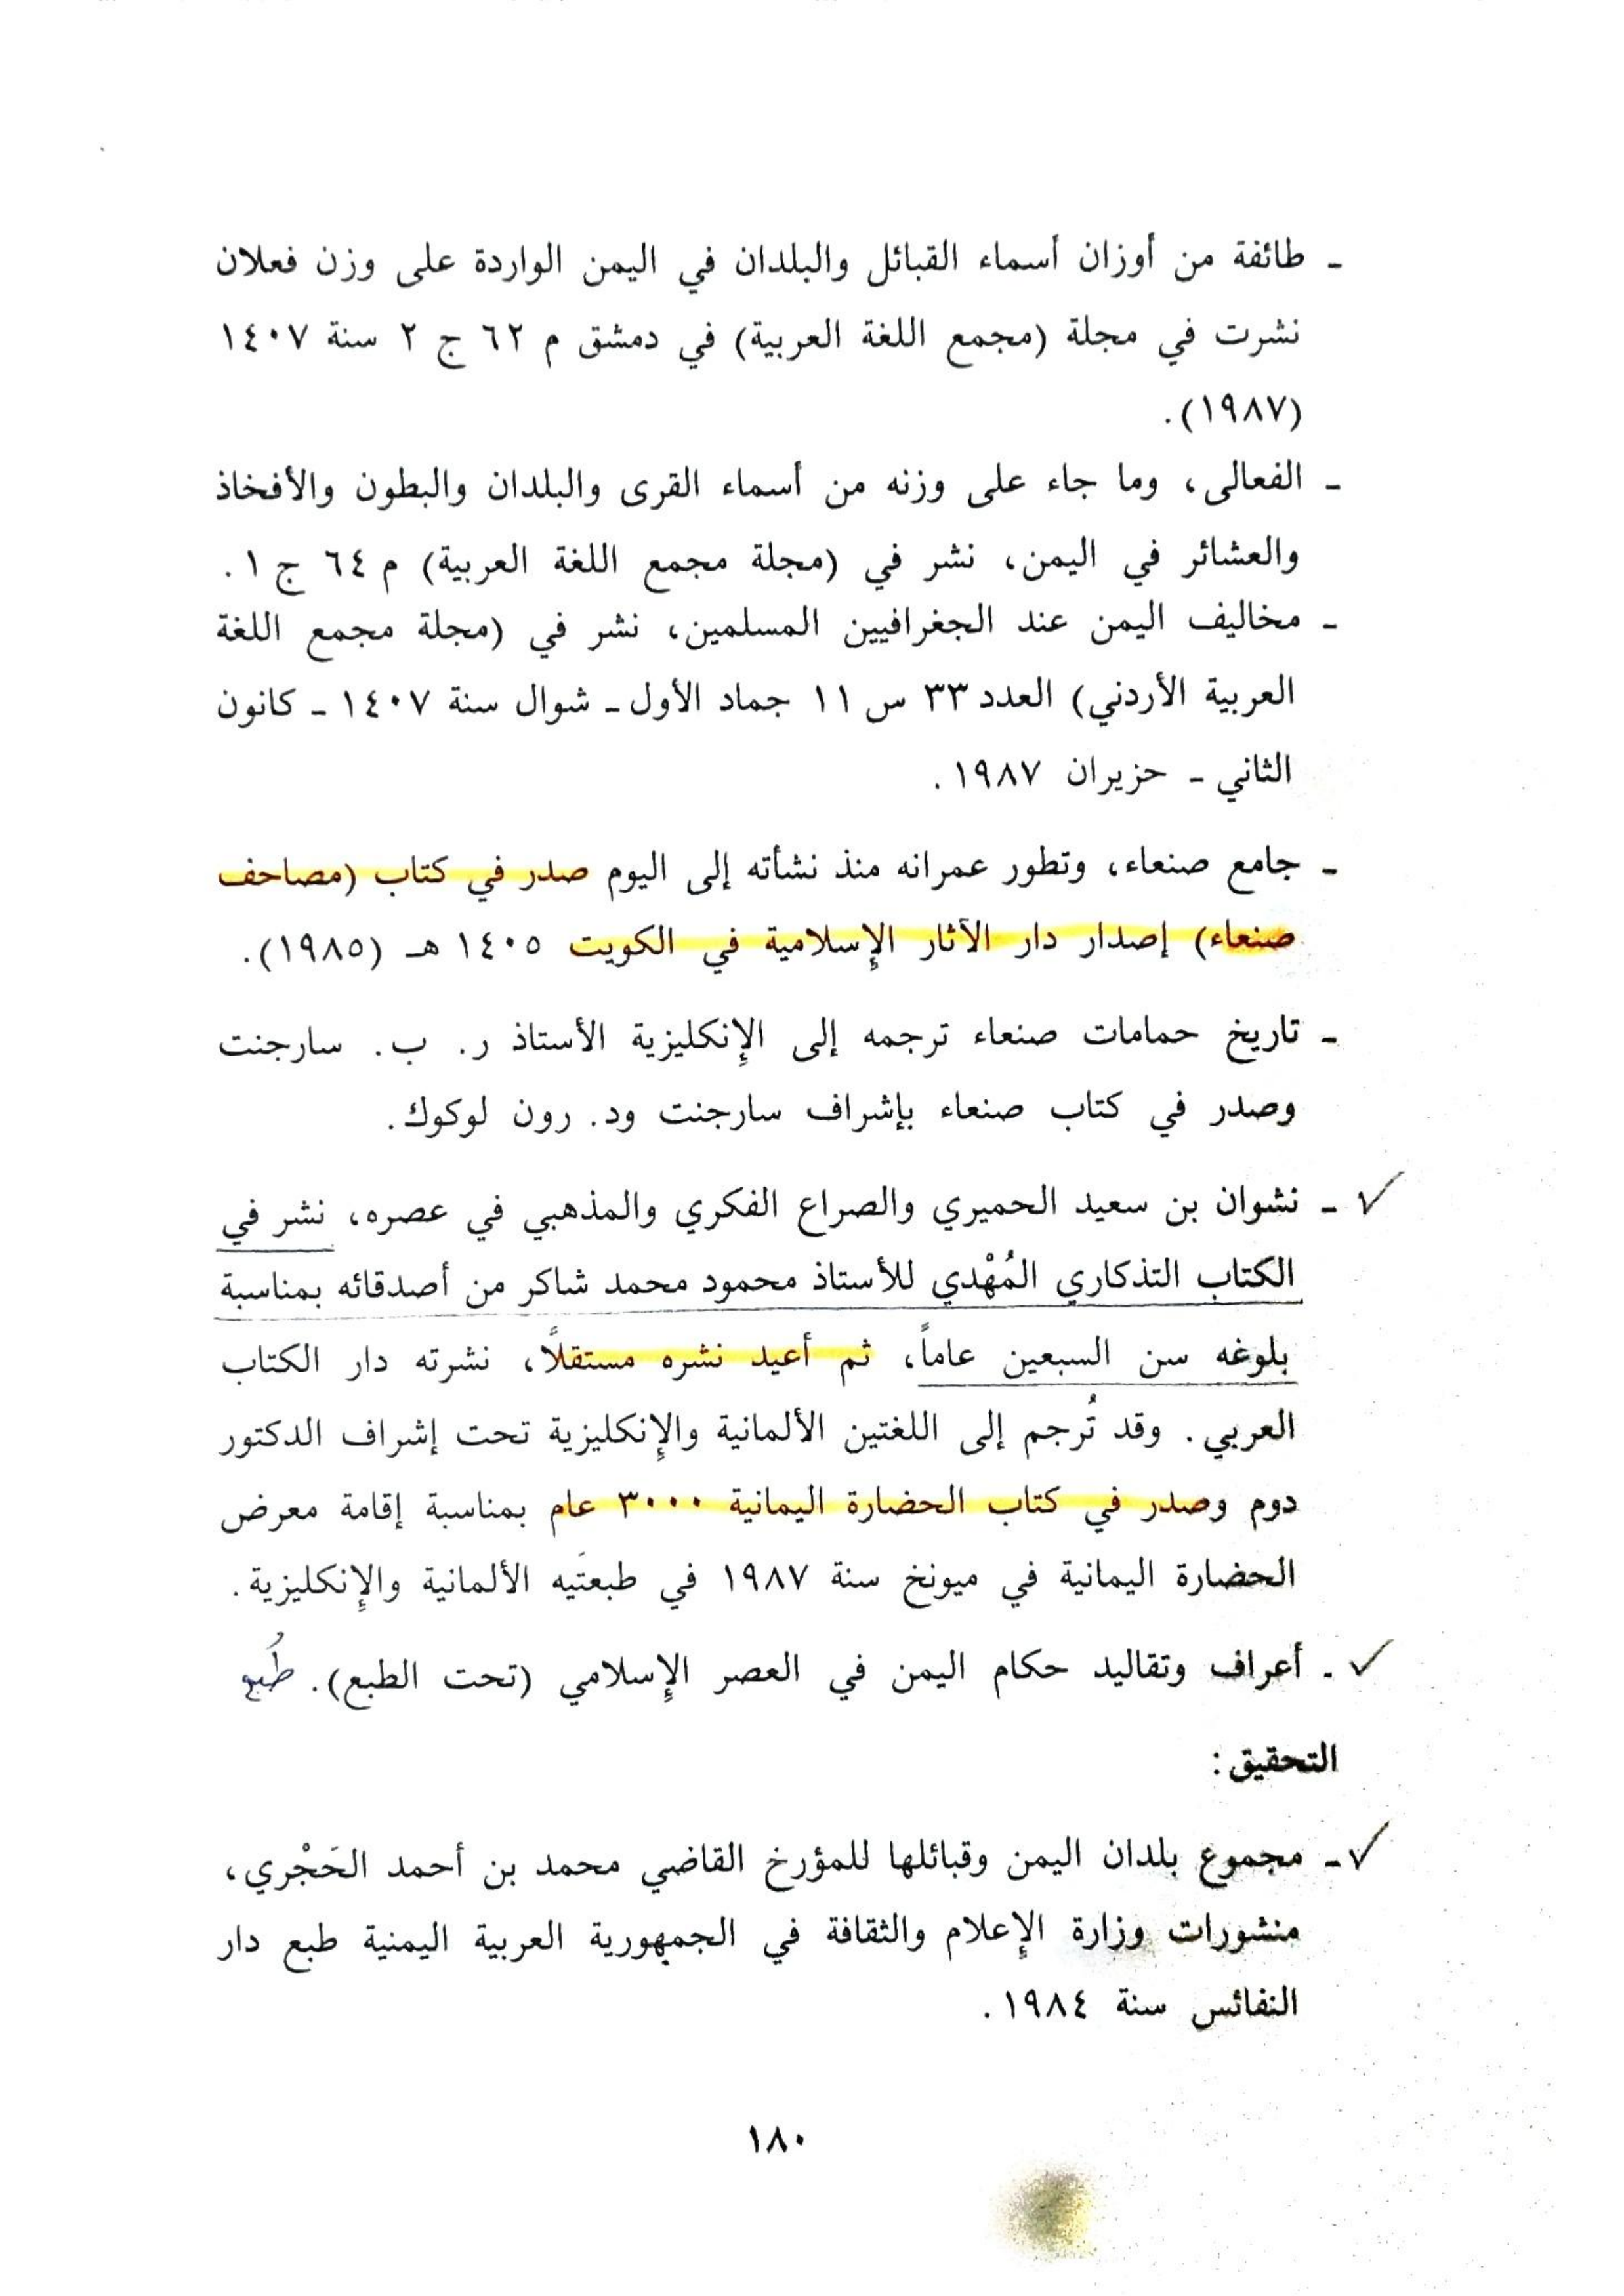 - طائفة من أوزان أسماء القبائل والبلدان في اليمن الواردة على وزن فعلان
نشرت في مجلة (مجمع اللغة العربية) في دمشق م ٦٢ ج ٢ سنة ١٤٠٧
(١٩٨٧).
- الفعالى، وما جاء على وزنه من أسماء القرى والبلدان والبطون والأفخاذ
والعشائر في اليمن، نشر في (مجلة مجمع اللغة العربية) م ٦٤ ج ١.
- مخاليف اليمن عند الجغرافيين المسلمين، نشر في (مجلة مجمع اللغة
العربية الأردني) العدد ٣٣ س ١١ جماد الأول - شوال سنة ١٤٠٧ - كانون
الثاني - حزيران ١٩٨٧.
- جامع صنعاء، وتطور عمرانه منذ نشأته إلى اليوم صدر في كتاب (مصاحف
صنعاء) إصدار دار الآثار الإسلامية في الكويت ١٤٠٥ هـ (١٩٨٥).
- تاريخ حمامات صنعاء ترجمه إلى الإنكليزية الأستاذ ر. ب. سارجنت
وصدر في كتاب صنعاء بإشراف سارجنت ود. رون لوكوك.
✓ - نشوان بن سعيد الحميري والصراع الفكري والمذهبي في عصره، نشر في
الكتاب التذكاري المُهْدي للأستاذ محمود محمد شاكر من أصدقائه بمناسبة
بلوغه سن السبعين عاماً، ثم أعيد نشره مستقلاً، نشرته دار الكتاب
العربي. وقد تُرجم إلى اللغتين الألمانية والإنكليزية تحت إشراف الدكتور
دوم وصدر في كتاب الحضارة اليمانية ٣٠٠٠ عام بمناسبة إقامة معرض
الحضارة اليمانية في ميونخ سنة ١٩٨٧ في طبعتَيه الألمانية والإنكليزية.
✓ - أعراف وتقاليد حكام اليمن في العصر الإسلامي (تحت الطبع). طُبع
التحقيق:
✓ - مجموع بلدان اليمن وقبائلها للمؤرخ القاضي محمد بن أحمد الحَجْري،
منشورات وزارة الإعلام والثقافة في الجمهورية العربية اليمنية طبع دار
النفائس سنة ١٩٨٤.
١٨٠